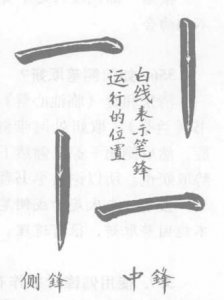 白线表示笔鋒
运行的位置
中鋒
侧鋒